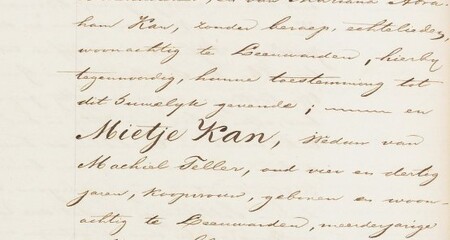 en van Mariana Abra-
ham Kan, zonder beroep, echtelieden,
woonachtig te Leeuwarden, hierby
tegenwoordig, hunne toestemming tot
dit huwelyk gevende; en
Mietje Kan, Weduw van
Machiel Teller, oud vier en dertig
jaren, Koopvrouw, geboren en woon-
achtig te Leeuwarden, meerderjarige